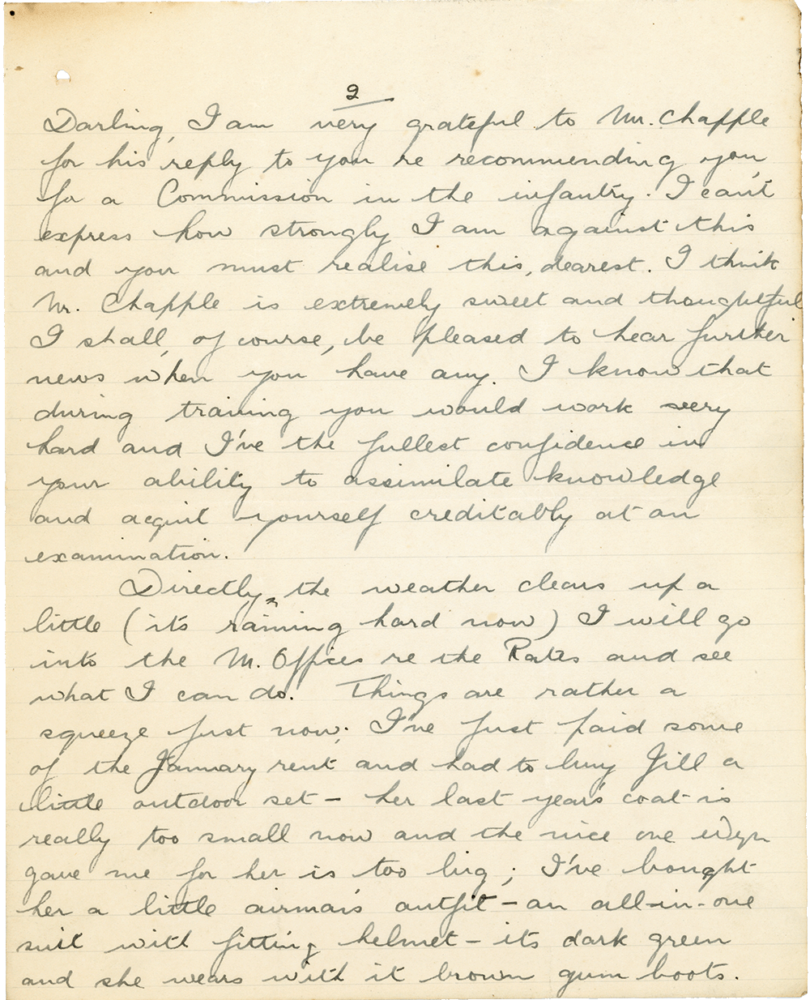 2
Darling, I am very grateful to Mr. Chapple
for his reply to you re recommending you
for a Commission in the infantry. I can't
express how strongly I am against this
and you must realise this, dearest. I think
Mr. Chapple is extremely sweet and thoughtful
I shall, of course, be pleased to hear further
news when you have any. I know that
during training you would work very
hard and I've the fullest confidence in
your ability to assimilate knowledge
and acquit yourself creditably at an
examination.
Directly the weather clears up a
little (it's raining hard now) I will go
into the M. Offices re the Rates and see
what I can do. Things are rather a
squeeze just now; I've just paid some
of the January rent and had to buy Jill a
little outdoor set - her last year's coat is
really too small now and the nice one
gave me for her is too big; I've bought
her a little airman's outfit - an all-in-one
suit with fitting helmet - its dark green
and she wears with it brown gum boots.